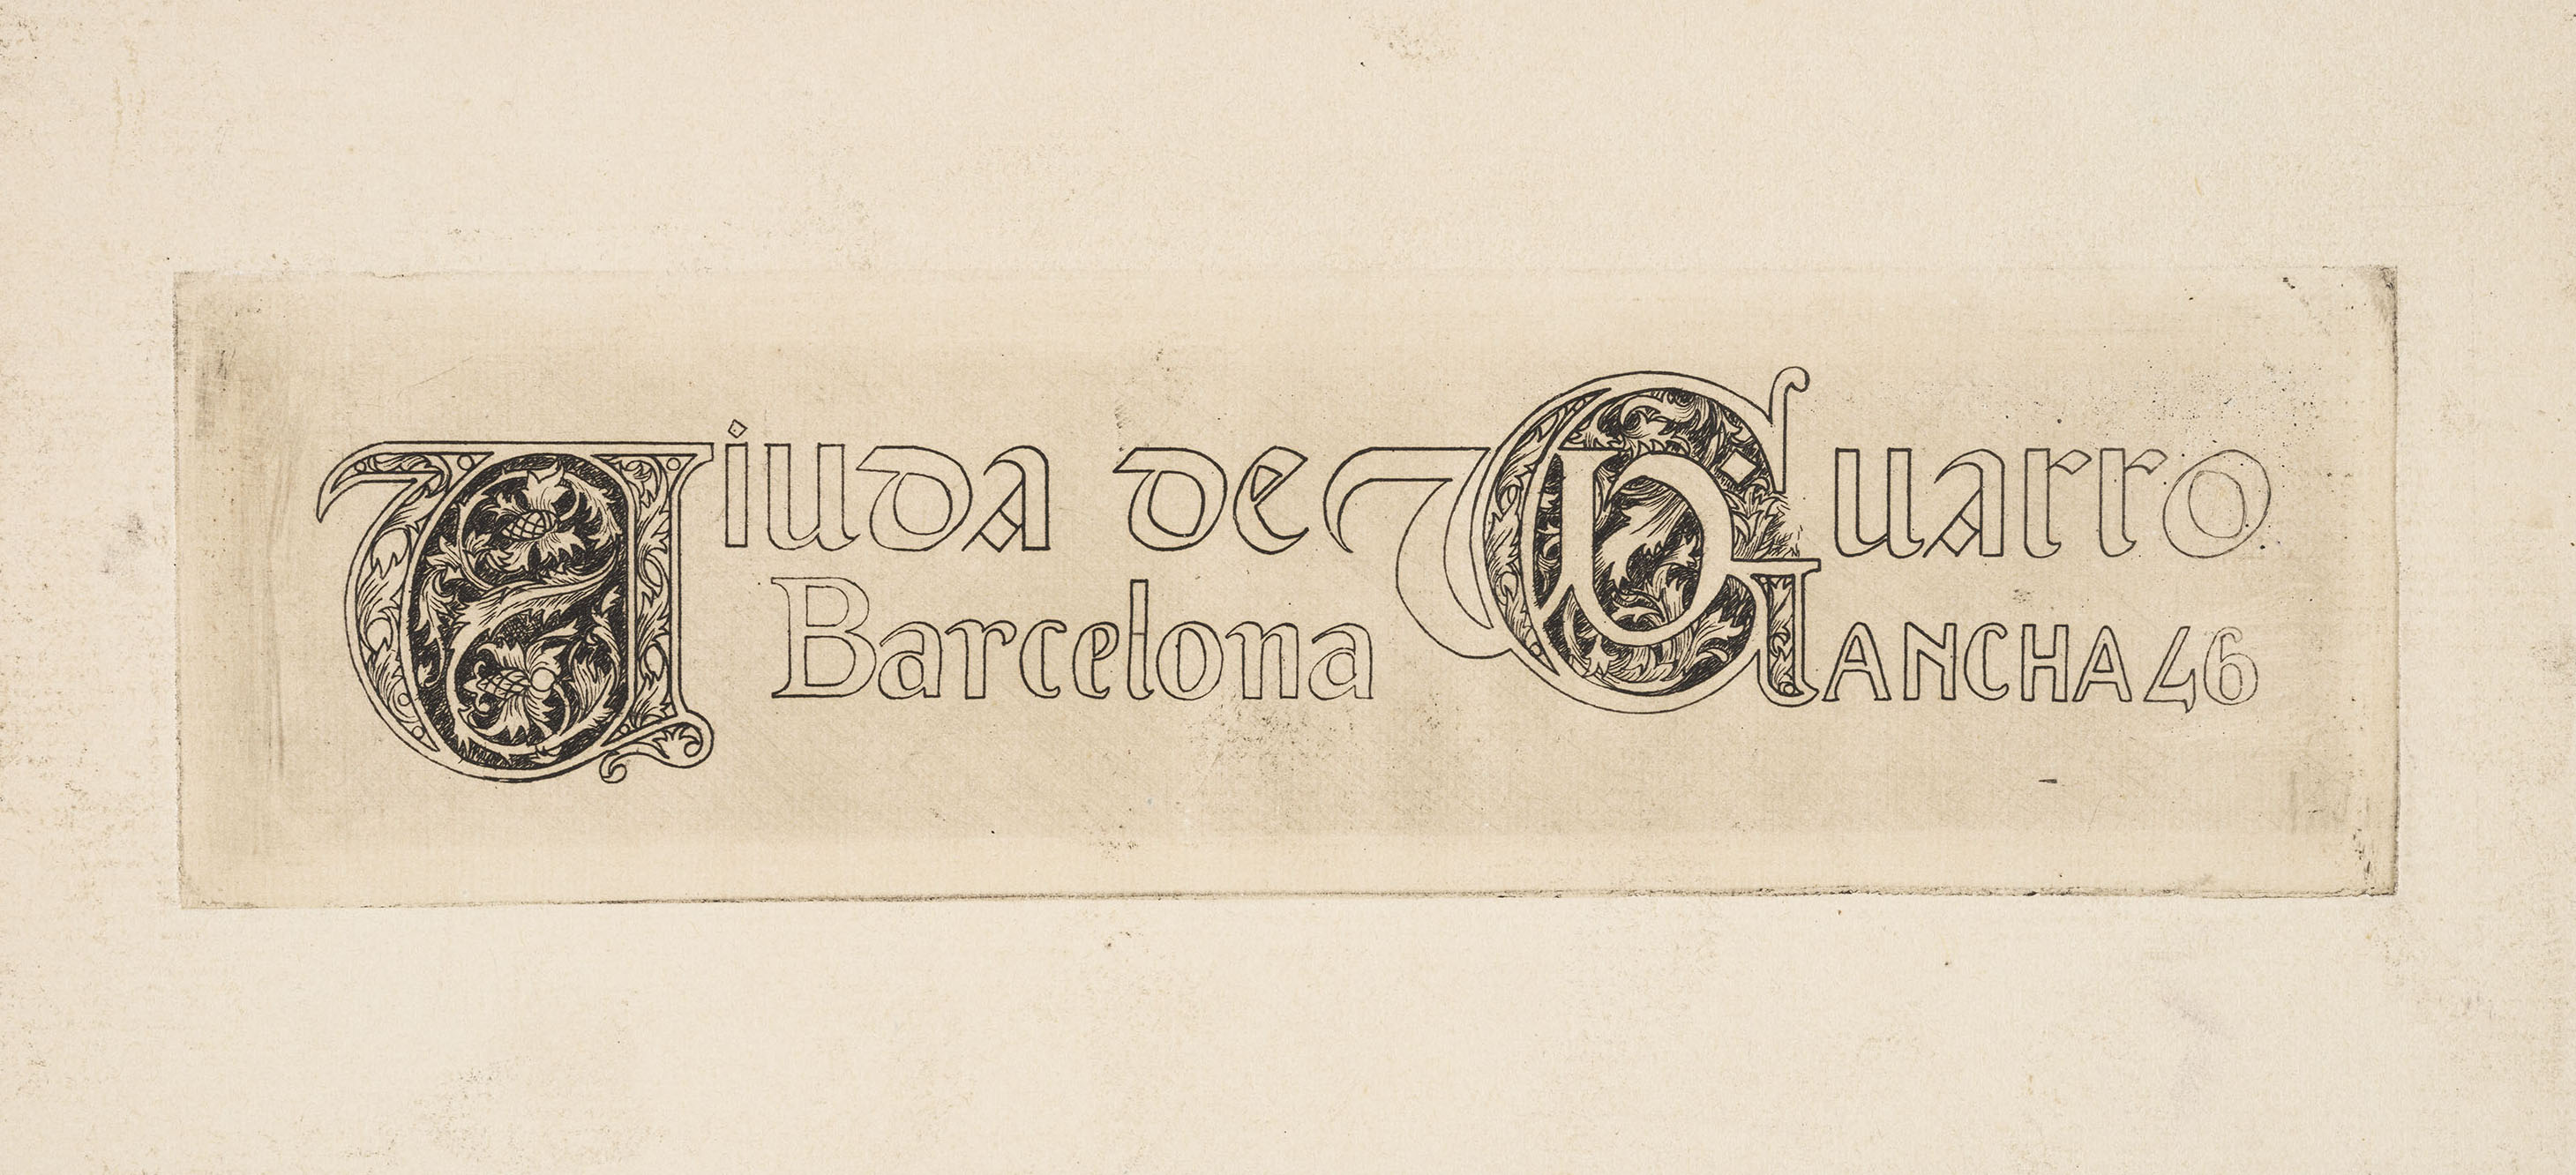 Viuda de W Guarro
Barcelona ANCHA 46